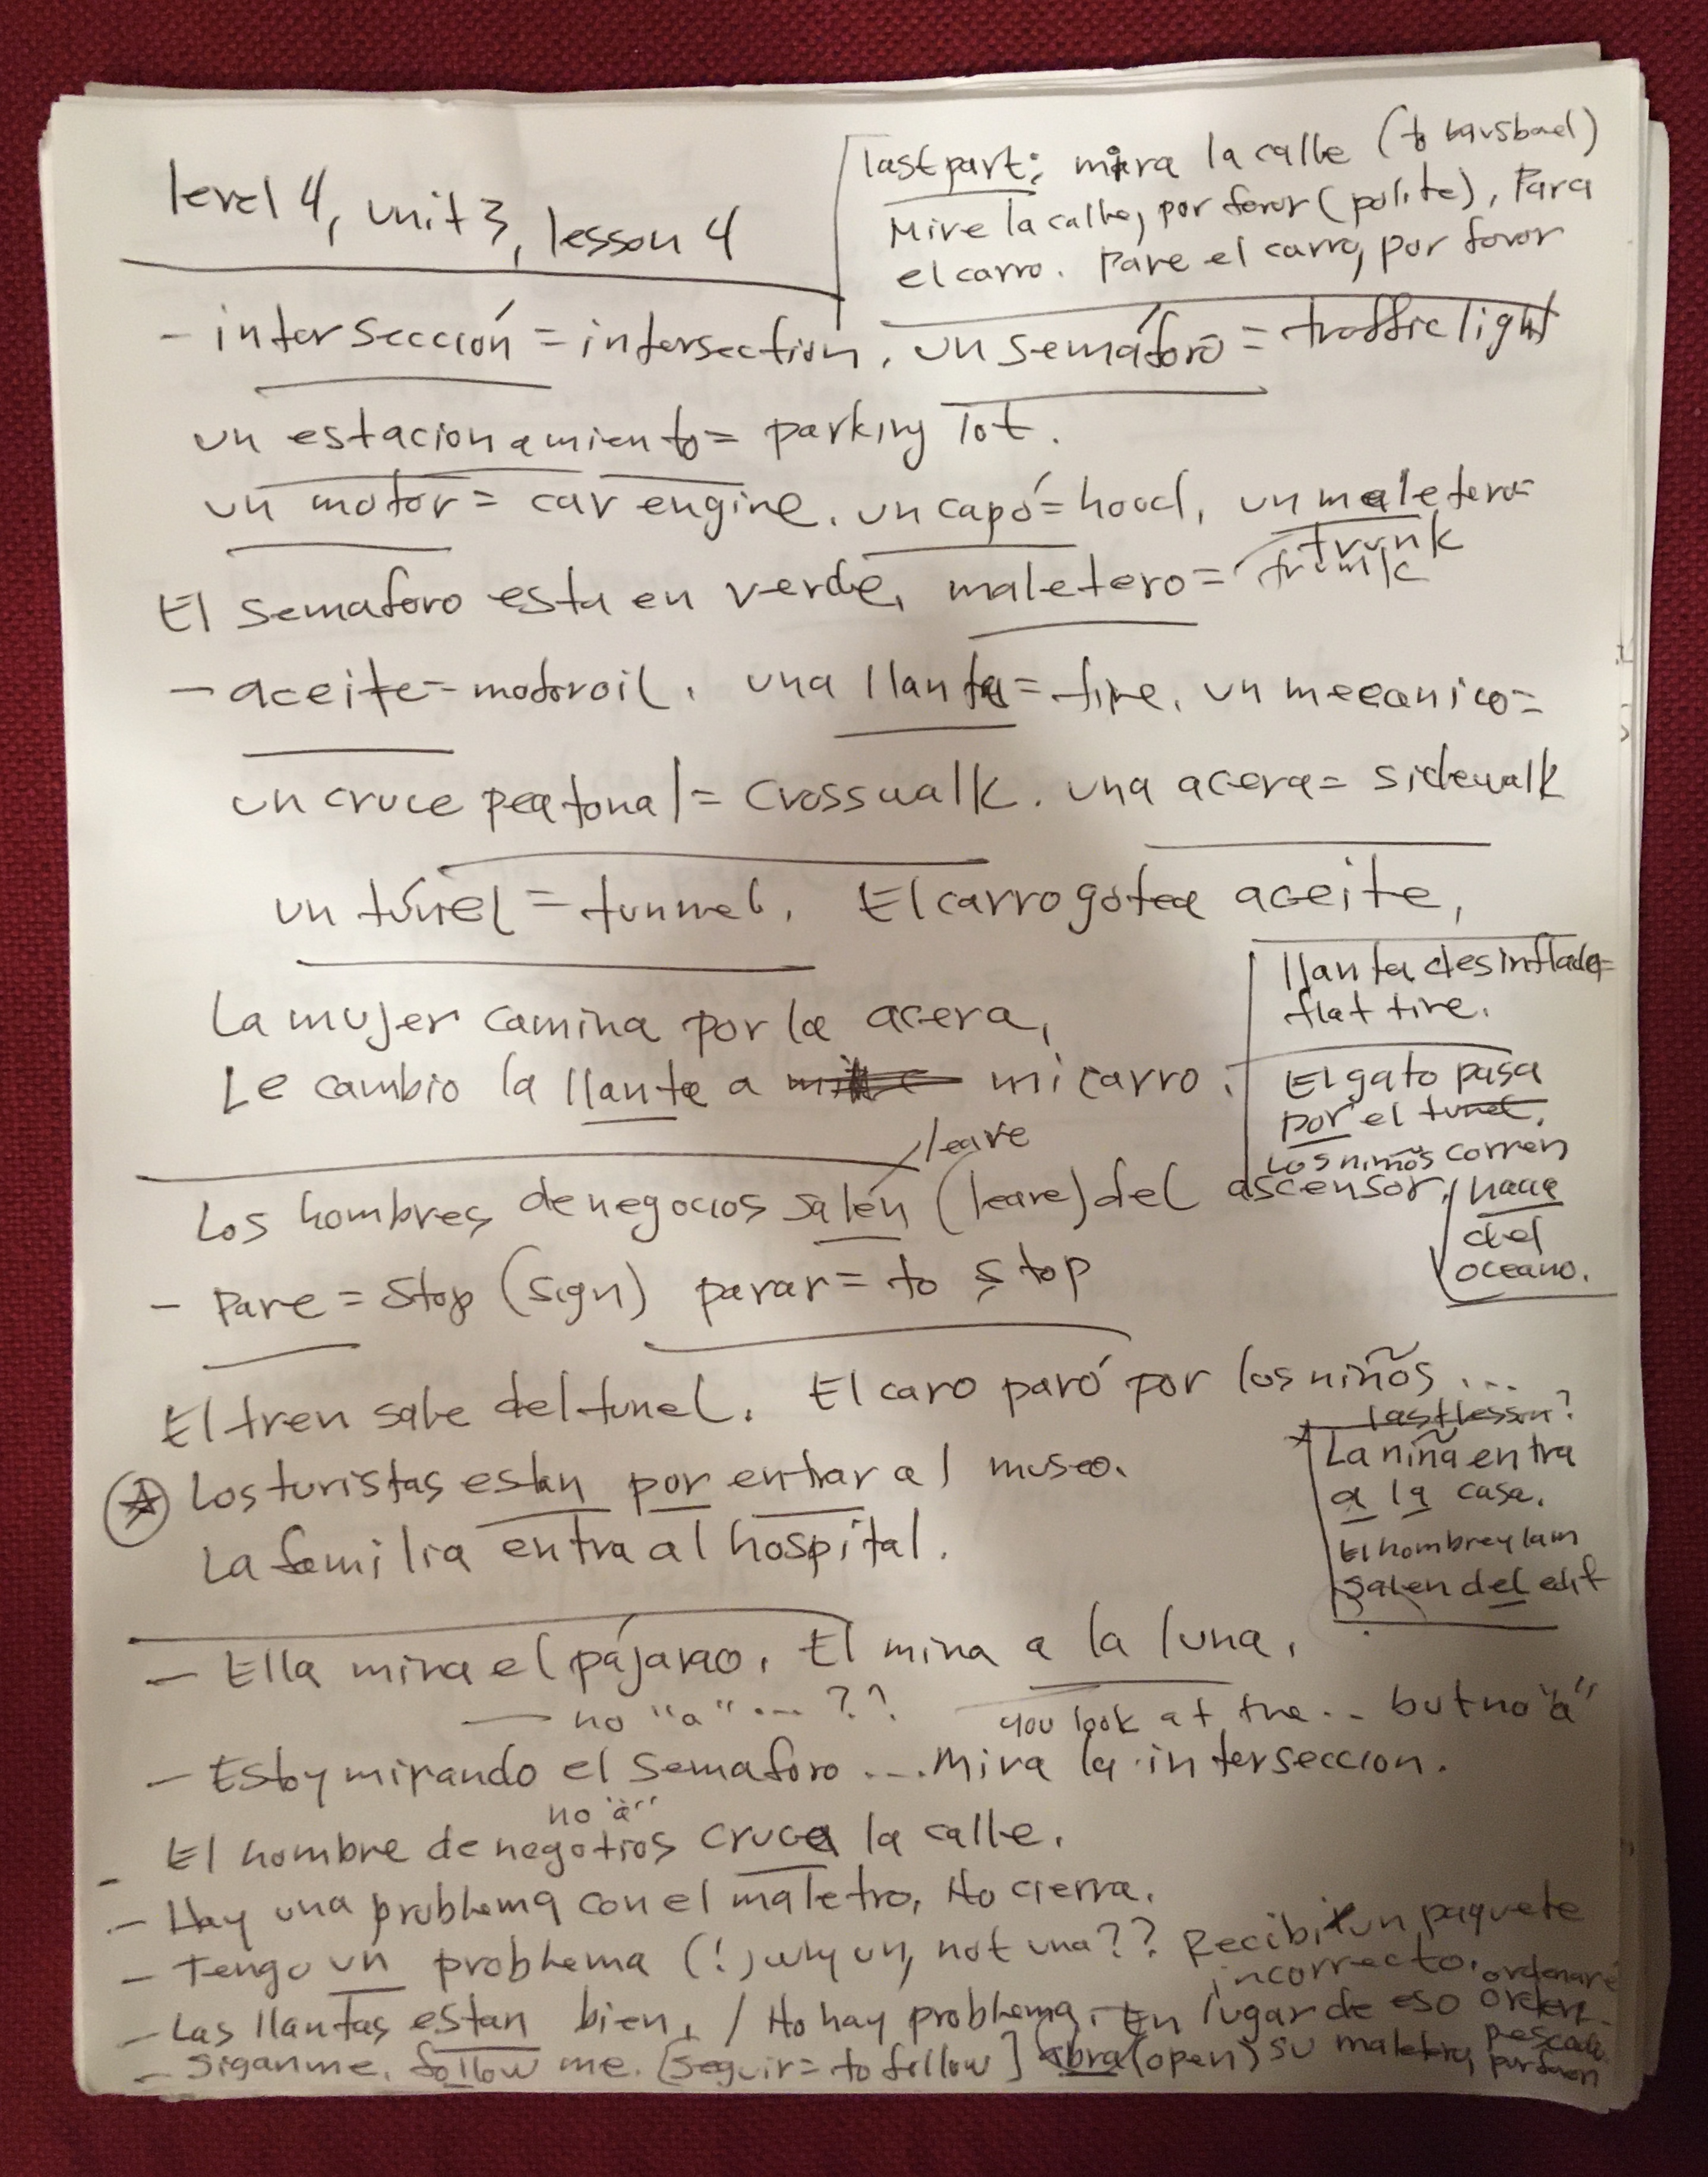 level 4, unit 3, lesson 4
last part: mira la calle (to husband)
Mire la calle, por favor (polite), Para
el carro. Pare el carro, por favor
- intersección = intersection, un semáforo = traffic light
un estacionamiento = parking lot.
un motor = car engine. un capó = hood, un maletero =
trunk
El semaforo esta en verde, maletero = trunk
- aceite = motor oil. una llanta = tire. un mecanico =
un cruce peatonal = crosswalk. una acera = sidewalk
un túnel = tunnel. El carro gotea aceite,
llanta desinflada =
flat tire.
La mujer camina por la acera,
Le cambio la llanta a mi carro.
El gato pasa
por el tunel.
Los niños corren
hacia
del
oceano.
leave
Los hombres de negocios salen (leave) del ascensor,
- Pare = Stop (sign) parar = to stop
El tren sale del tunel. El caro paró por los niños ...
last lesson?
La niña entra
a la casa.
El hombre y la m
salen del edif
Los turistas estan por entrar al museo.
La familia entra al hospital.
- Ella mira el pájarao. El mira a la luna.
no "a" ... ?? you look at the ... but no "a"
- Estoy mirando el semaforo ... Mira la interseccion.
no "a"
- El hombre de negotios cruca la calle.
- Hay una problema con el maletro, No cierra.
- Tengo un problema (!) why un, not una?? Recibi un paquete
incorrecto. ordenaré
- Las llantas estan bien. / No hay problema. En lugar de eso orden
pescado
- siganme. follow me. [seguir = to follow] abra (open) su maletro, por favor